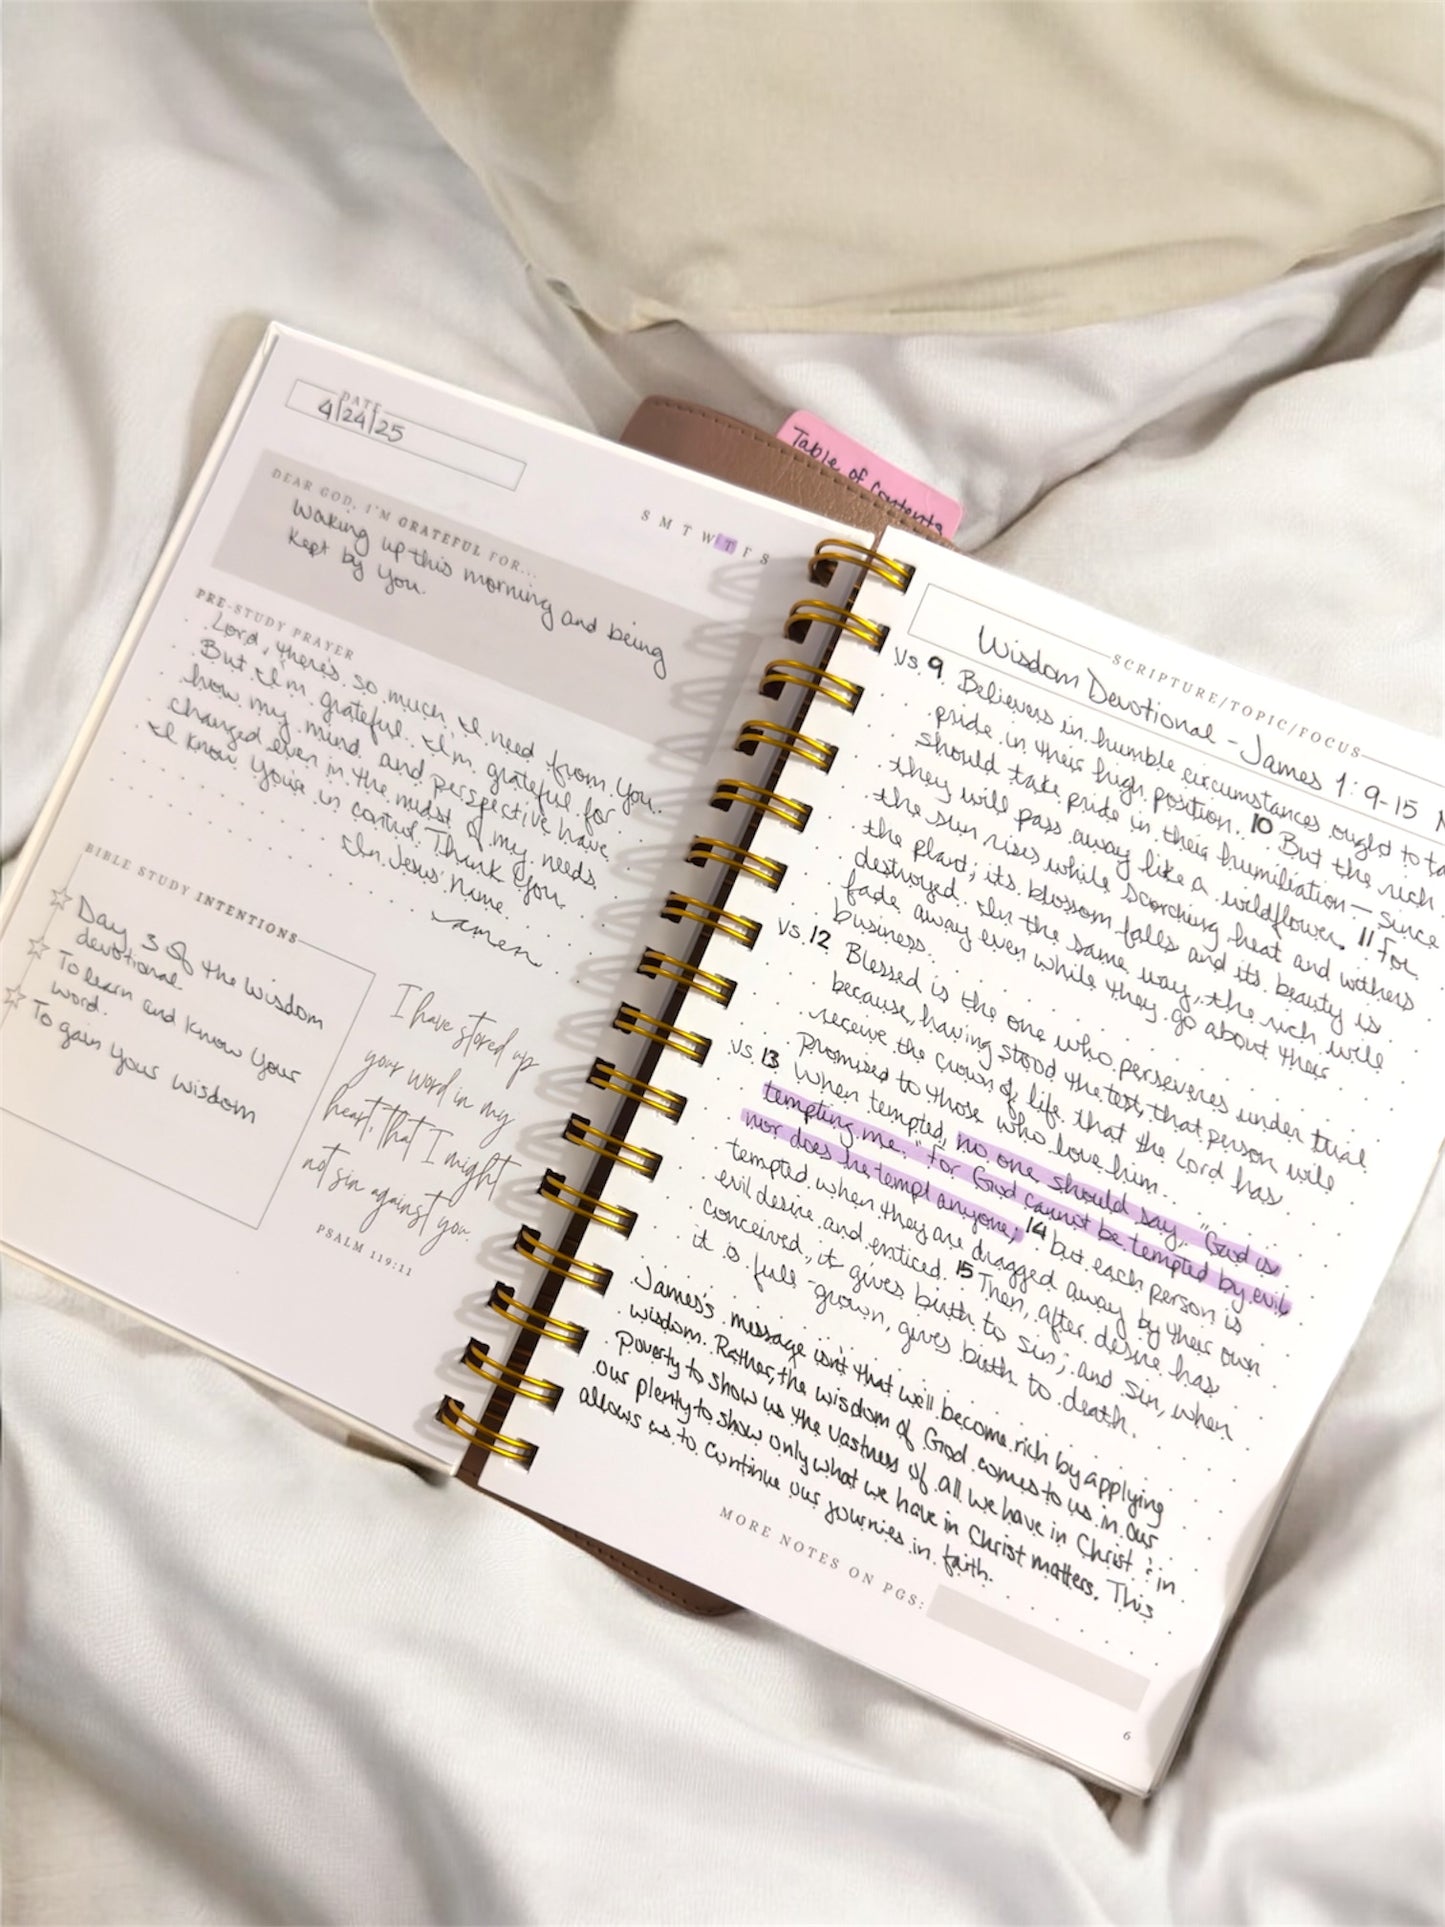 DATE
4/24/25
S M T W T F S
DEAR GOD, I'M GRATEFUL FOR...
Waking up this morning and being
kept by You.
PRE-STUDY PRAYER
Lord, there's so much I need from You.
But I'm grateful. I'm grateful for
how my mind and perspective have
changed even in the midst of my needs.
I know You're in control. Thank You
In Jesus' name.
amen
BIBLE STUDY INTENTIONS
Day 3 of the Wisdom
devotional
To learn and know Your
word.
To gain Your wisdom
I have stored up
your word in my
heart, that I might
not sin against you.
PSALM 119:11
Table of Contents
SCRIPTURE/TOPIC/FOCUS
Wisdom Devotional - James 1:9-15 N
Vs. 9 Believers in humble circumstances ought to ta
pride in their high position. 10 But the rich
should take pride in their humiliation — since
they will pass away like a wildflower. 11 For
the sun rises while scorching heat and withers
the plant; its blossom falls and its beauty is
destroyed. In the same way, the rich will
fade away even while they go about their
business.
Vs. 12 Blessed is the one who perseveres under trial
because, having stood the test, that person will
receive the crown of life that the Lord has
promised to those who love him.
Vs. 13 When tempted, no one should say, "God is
tempting me." For God cannot be tempted by evil
nor does he tempt anyone; 14 but each person is
tempted when they are dragged away by their own
evil desire and enticed. 15 Then, after desire has
conceived, it gives birth to sin; and sin, when
it is full-grown, gives birth to death.
James's message isn't that we'll become rich by applying
wisdom. Rather, the wisdom of God comes to us in our
poverty to show us the vastness of all we have in Christ & in
our plenty to show only what we have in Christ matters. This
allows us to continue our journies in faith.
MORE NOTES ON PGS:
6